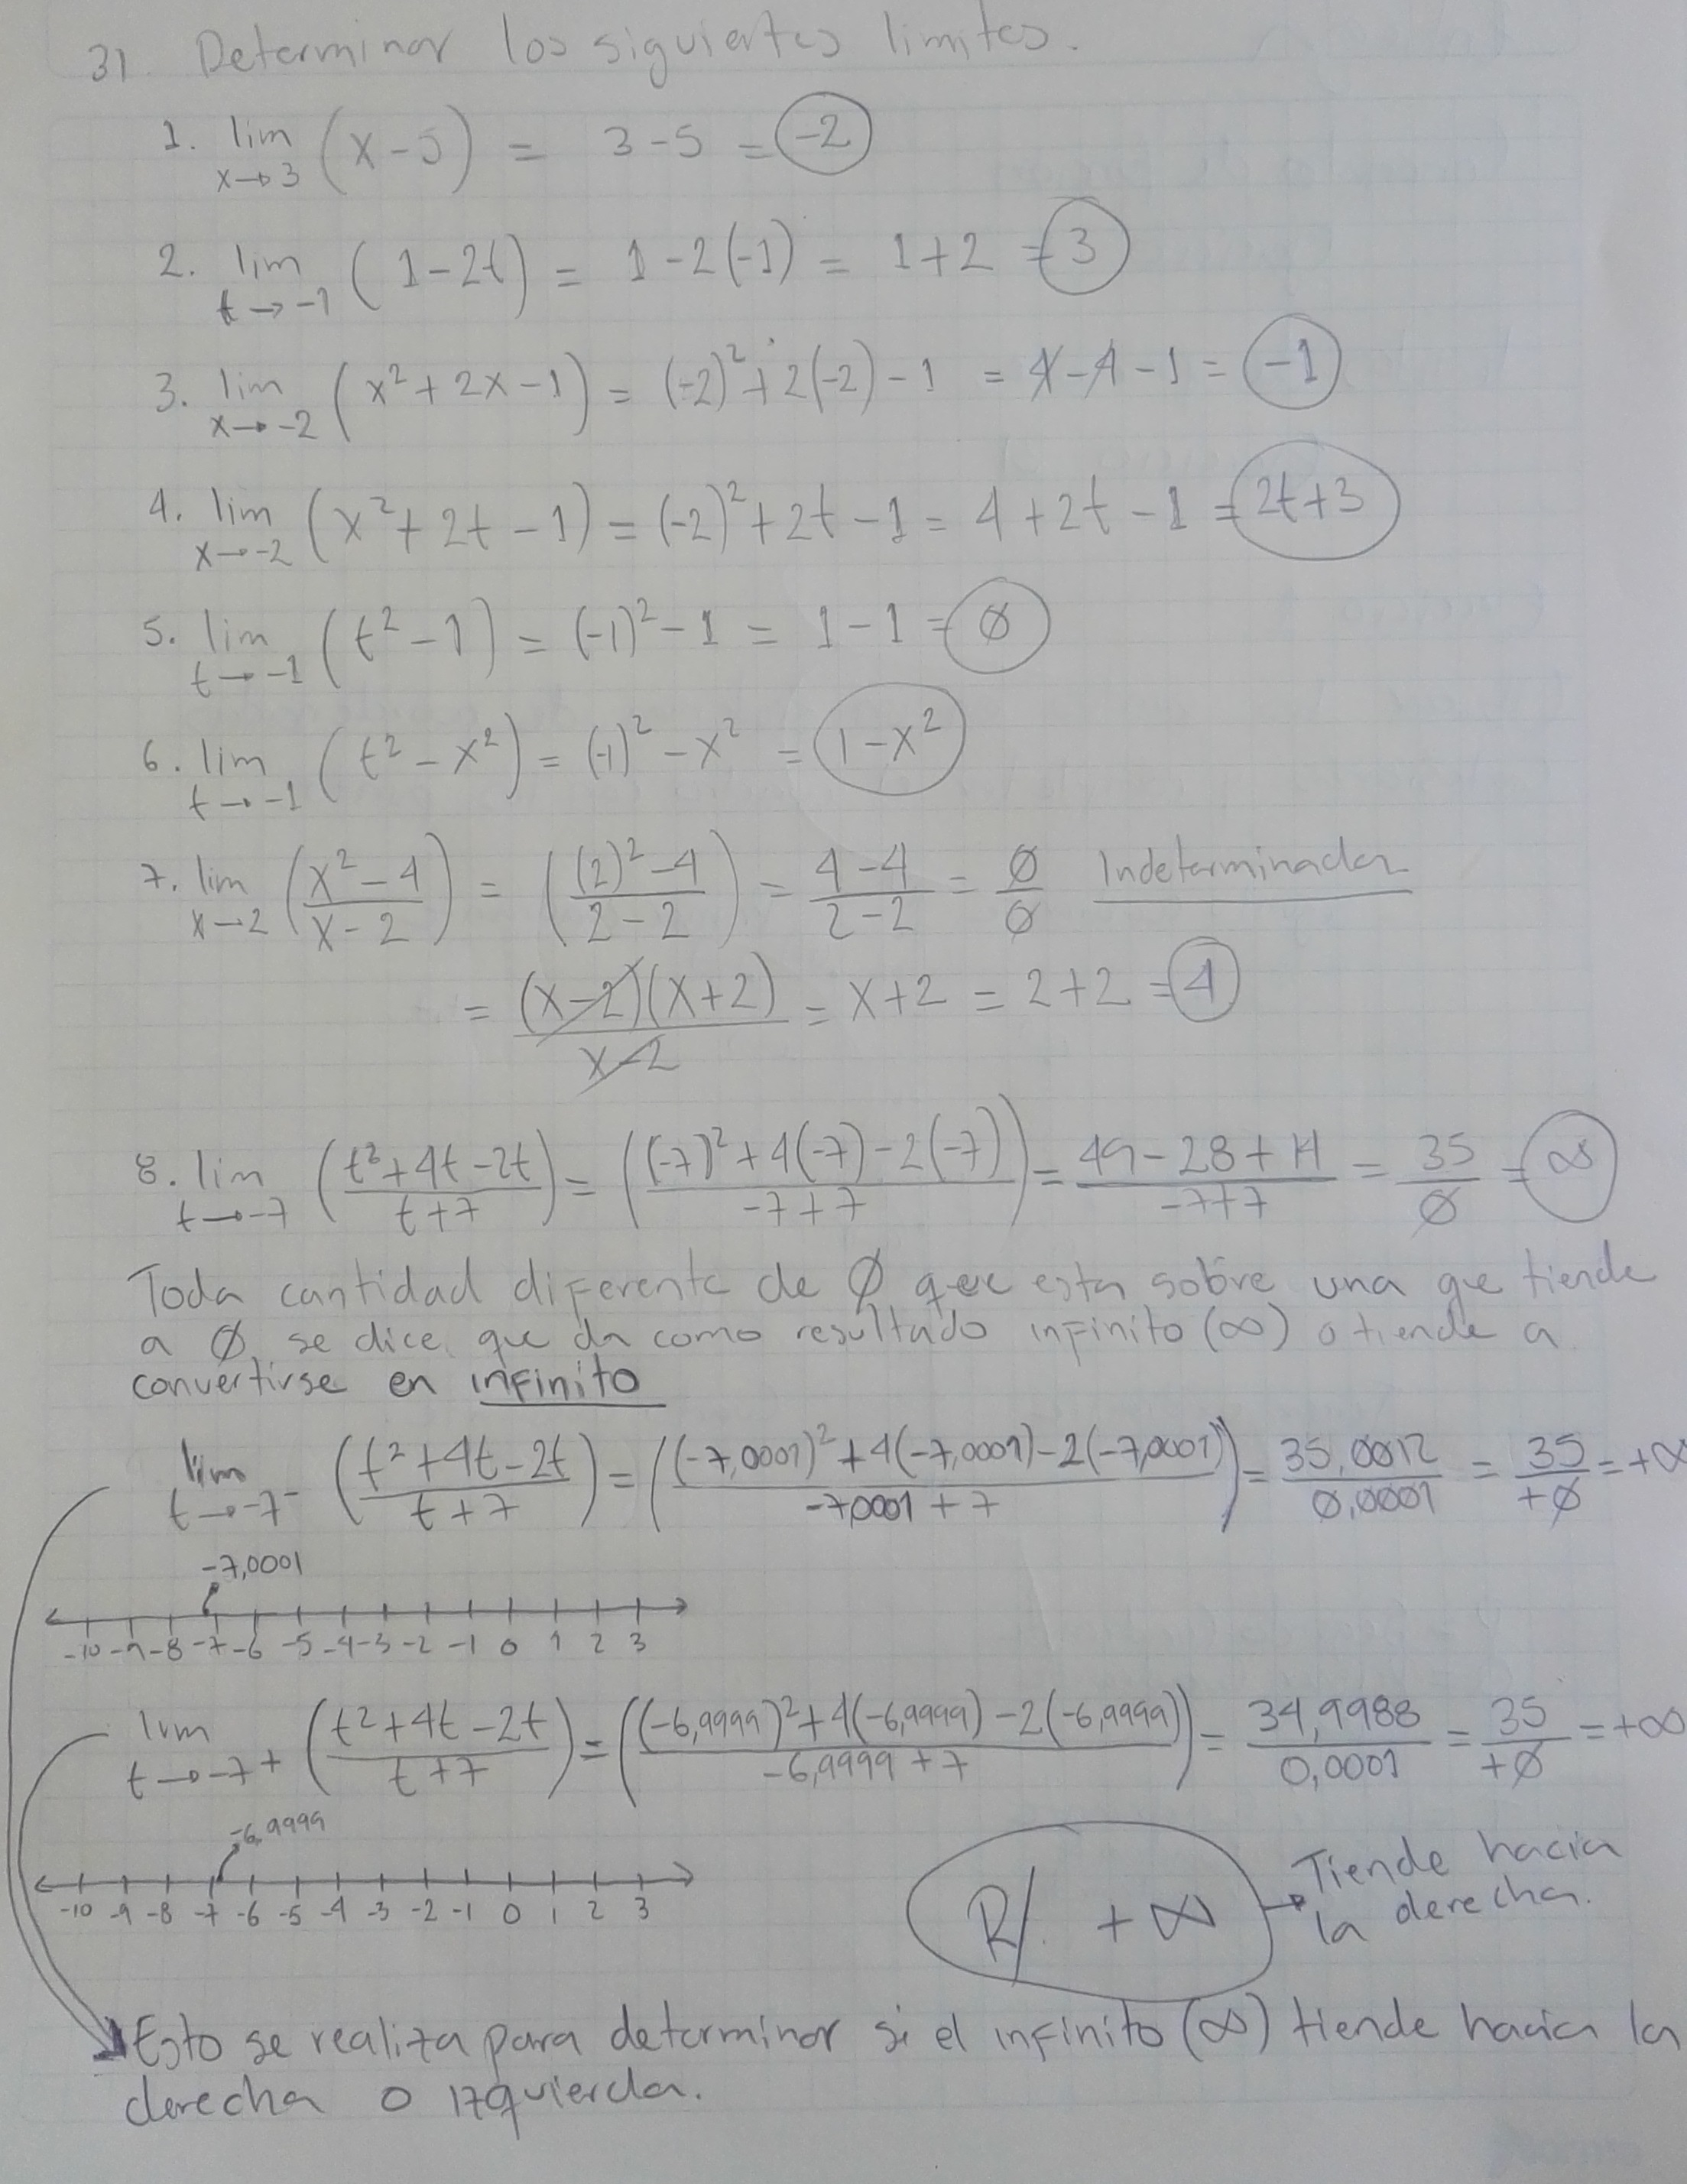 31. Determinar los siguientes limites.
1. lim x→3 (x-5) = 3-5 = -2
2. lim t→-1 (1-2t) = 1-2(-1) = 1+2 = 3
3. lim x→-2 (x²+2x-1) = (-2)²+2(-2)-1 = 4-4-1 = -1
4. lim x→-2 (x²+2t-1) = (-2)²+2t-1 = 4+2t-1 = 2t+3
5. lim t→-1 (t²-1) = (-1)²-1 = 1-1 = Ø
6. lim t→-1 (t²-x²) = (-1)²-x² = 1-x²
7. lim x→2 ((x²-4)/(x-2)) = (((2)²-4)/(2-2)) = (4-4)/(2-2) = Ø/Ø Indeterminada
= ((x-2)(x+2))/(x-2) = x+2 = 2+2 = 4
8. lim t→-7 ((t²+4t-2t)/(t+7)) = (((-7)²+4(-7)-2(-7))/(-7+7)) = (49-28+14)/(-7+7) = 35/Ø = ∞
Toda cantidad diferente de Ø que esta sobre una que tiende
a Ø, se dice que da como resultado infinito (∞) o tiende a
convertirse en infinito
lim t→-7⁻ ((t²+4t-2t)/(t+7)) = (((-7,0001)²+4(-7,0001)-2(-7,0001))/(-7,0001+7)) = 35,0012/0,0001 = 35/+Ø = +∞
-7,0001
-10 -9 -8 -7 -6 -5 -4 -3 -2 -1 0 1 2 3
lim t→-7+ ((t²+4t-2t)/(t+7)) = (((-6,9999)²+4(-6,9999)-2(-6,9999))/(-6,9999+7)) = 34,9988/0,0001 = 35/+Ø = +∞
-6,9999
-10 -9 -8 -7 -6 -5 -4 -3 -2 -1 0 1 2 3
R/. +∞ → Tiende hacia
la derecha.
Esto se realiza para determinar si el infinito (∞) tiende hacia la
derecha o izquierda.